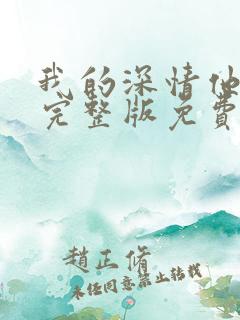 我的深情他
完整版免费
赵正脩
未经同意禁止转载